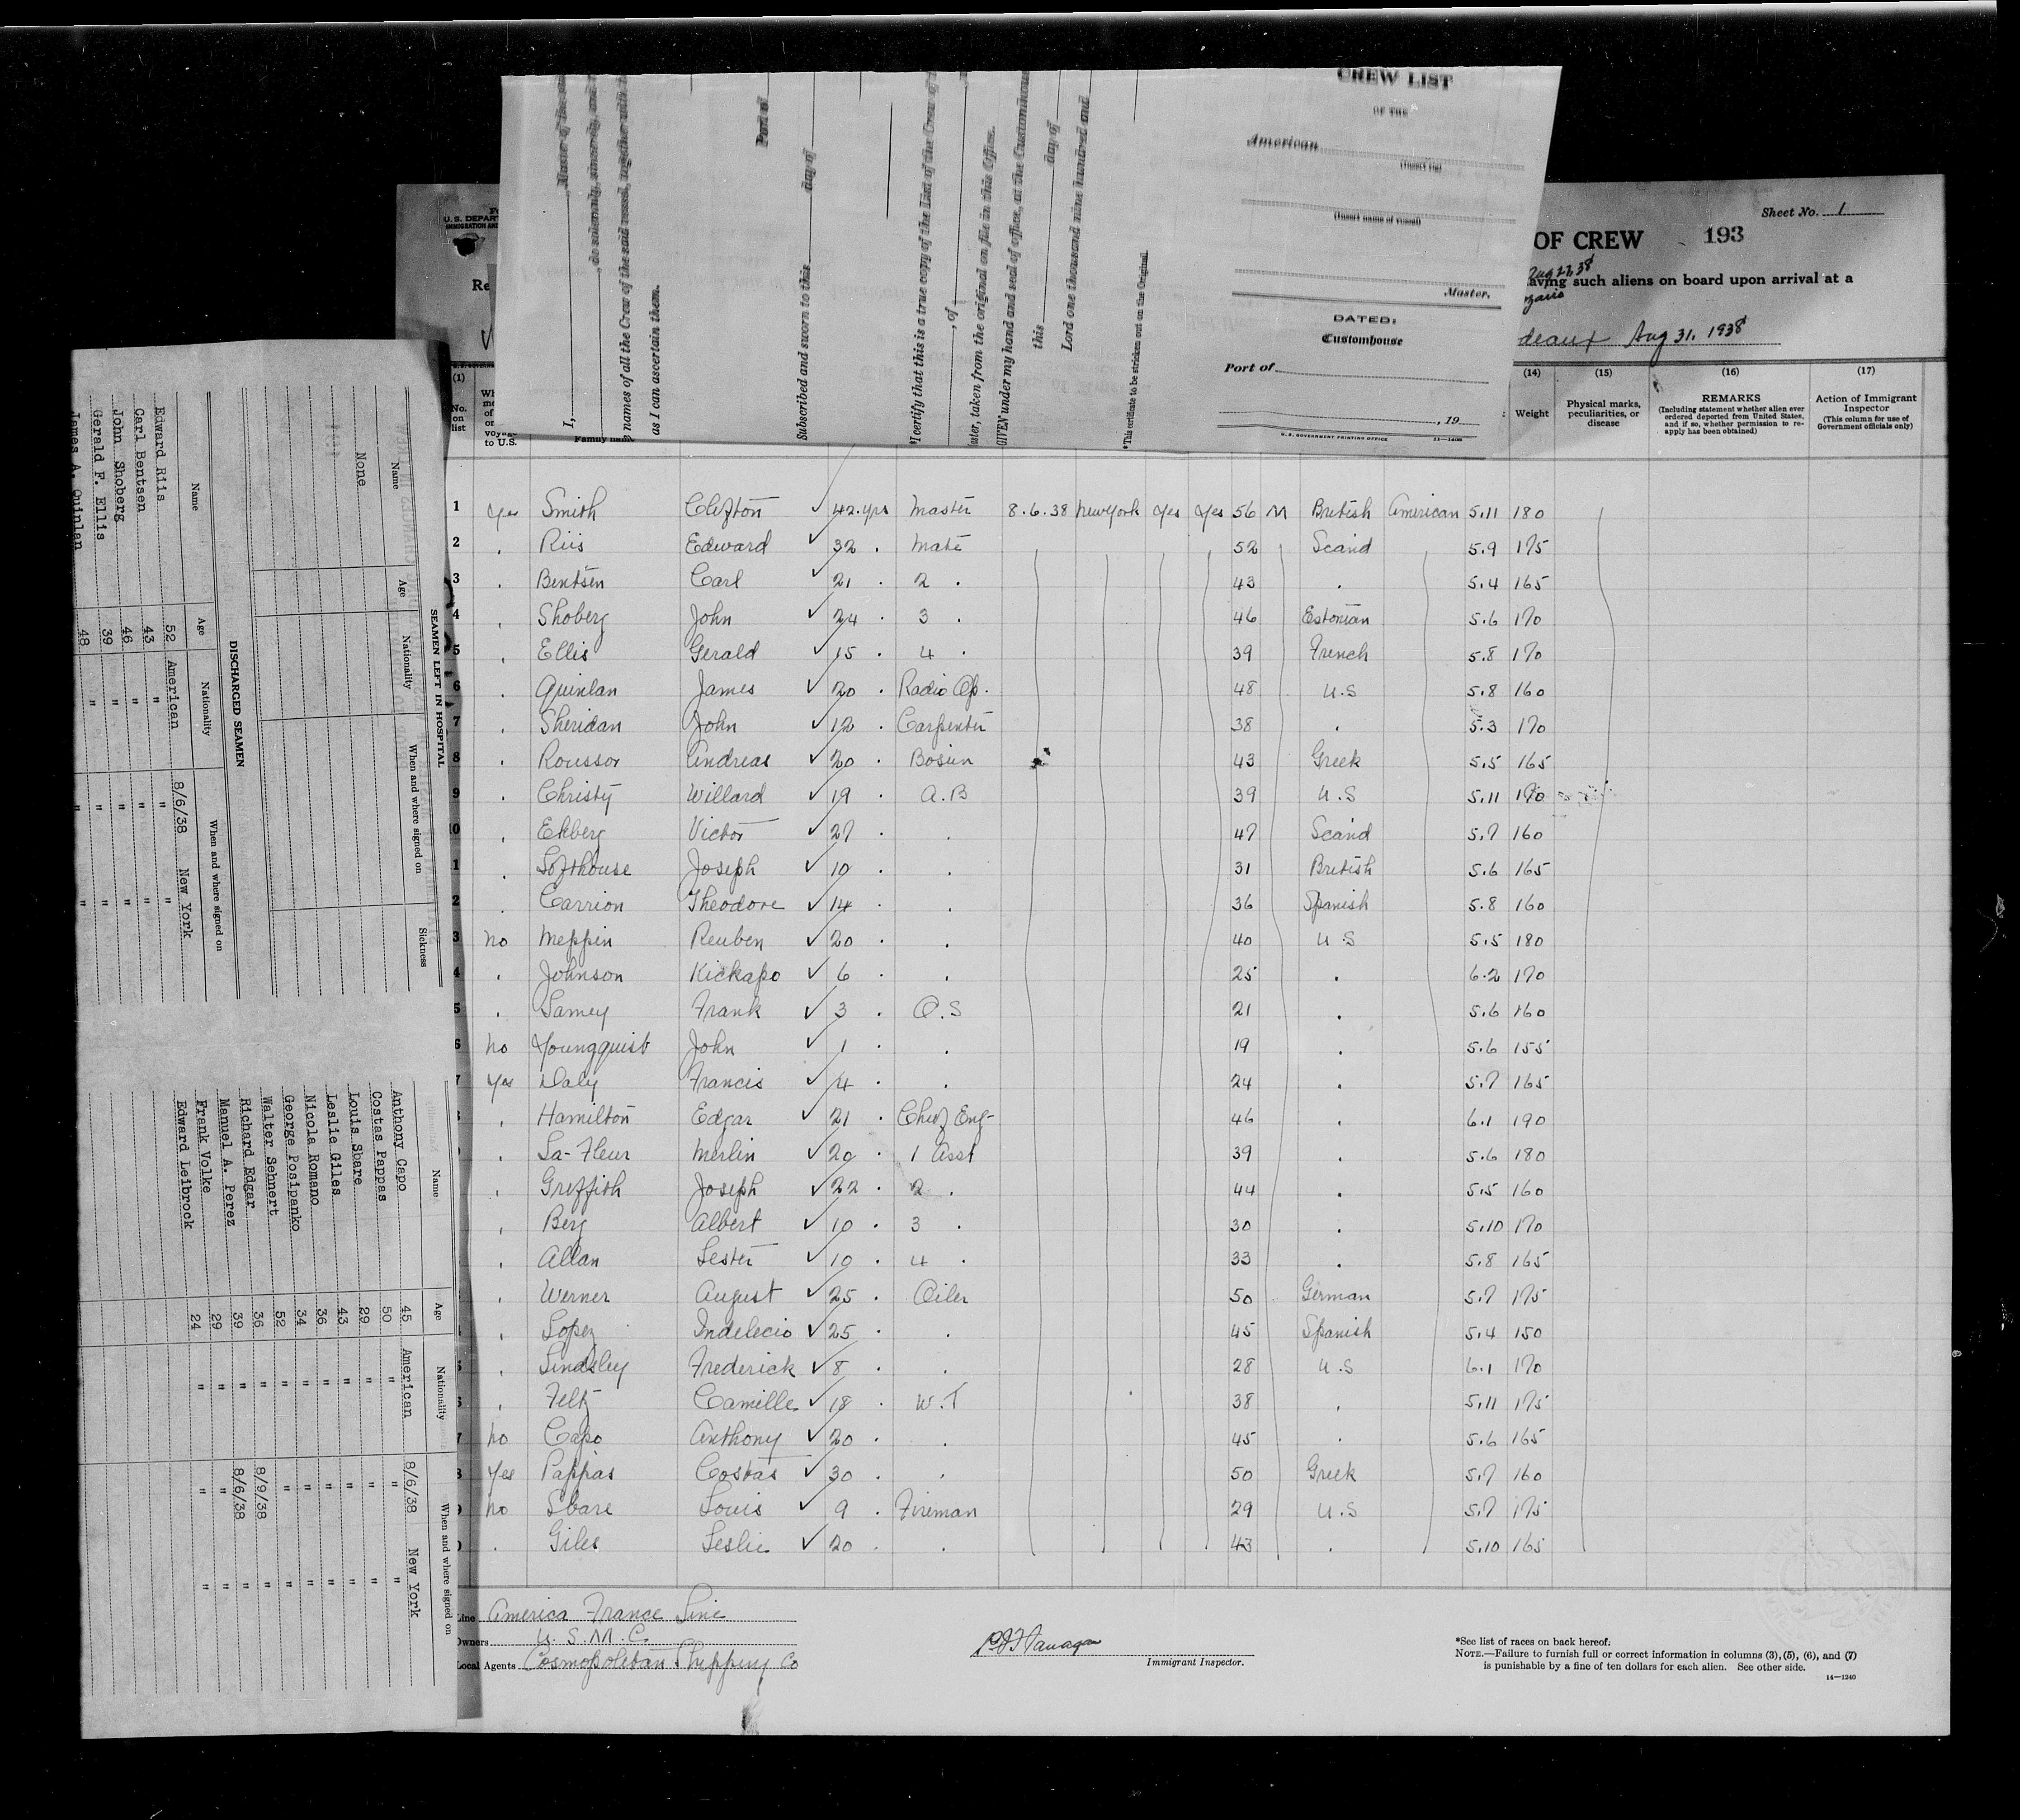 CREW LIST
OF THE
American
(Insert rig)
(Insert name of vessel)
Master.
DATED:
Customhouse
Port of
, 19
U. S. GOVERNMENT PRINTING OFFICE
I,
, do solemnly, sincerely, and
names of all the Crew of the said vessel, together with
as I can ascertain them.
Port of
Subscribed and sworn to this day of
*I certify that this is a true copy of the List of the Crew of
, of
ster, taken from the original on file in this Office.
GIVEN under my hand and seal of office, at the Customhouse
this day of
Lord one thousand nine hundred and
*This certificate to be stricken out on the Original.
U. S. DEPAR
IMMIGRATION AND
Re
Sheet No. 1
OF CREW 193
Aug 27, 38
aving such aliens on board upon arrival at a
deaux Aug 31, 1938
(1) (14) (15) (16) (17)
No. on list
voyage to U.S.
Family name
Weight
Physical marks, peculiarities, or disease
REMARKS
(Including statement whether alien ever ordered deported from United States, and if so, whether permission to reapply has been obtained)
Action of Immigrant Inspector
(This column for use of Government officials only)
1 Yes Smith Clifton ✓ 42 yrs Master 8.6.38 New York Yes Yes 56 M British American 5.11 180
2 . Riis Edward ✓ 32 . Mate 52 Scand 5.9 175
3 . Bentsen Carl ✓ 21 . 2 . 43 . 5.4 165
4 . Shoberg John ✓ 24 . 3 . 46 Estonian 5.6 170
5 . Ellis Gerald ✓ 15 . 4 . 39 French 5.8 170
6 . Quinlan James ✓ 20 . Radio Op. 48 U.S 5.8 160
7 . Sheridan John ✓ 12 . Carpenter 38 . 5.3 170
8 . Roussos Andreas ✓ 20 . Bosun 43 Greek 5.5 165
9 . Christy Willard ✓ 19 . A.B 39 U.S 5.11 190
10 . Ekberg Victor ✓ 27 . . 47 Scand 5.7 160
1 . Lofthouse Joseph ✓ 10 . . 31 British 5.6 165
2 . Carrion Theodore ✓ 14 . . 36 Spanish 5.8 160
3 no Meppin Reuben ✓ 20 . . 40 U.S 5.5 180
4 . Johnson Kickapo ✓ 6 . . 25 . 6.2 170
5 . Lamey Frank ✓ 3 . O.S 21 . 5.6 160
6 no Youngquist John ✓ 1 . . 19 . 5.6 155
7 Yes Daly Francis ✓ 4 . . 24 . 5.7 165
. Hamilton Edgar ✓ 21 . Chief Eng 46 . 6.1 190
. La-Fleur Merlin ✓ 20 . 1 Asst 39 . 5.6 180
. Griffith Joseph ✓ 22 . 2 . 44 . 5.5 160
. Berg Albert ✓ 10 . 3 . 30 . 5.10 170
. Allan Lester ✓ 10 . 4 . 33 . 5.8 165
. Werner August ✓ 25 . Oiler 50 German 5.7 175
. Lopez Indelecio ✓ 25 . . 45 Spanish 5.4 150
. Lindsley Frederick ✓ 8 . . 28 U.S 6.1 170
. Feltz Camille ✓ 18 . W.T 38 . 5.11 175
7 no Capo Anthony ✓ 20 . . 45 . 5.6 165
8 Yes Pappas Costas ✓ 30 . . 50 Greek 5.7 160
9 no Sbare Louis ✓ 9 . Fireman 29 U.S 5.7 175
0 . Giles Leslie ✓ 20 . . 43 . 5.10 165
Line America France Line
Owners U.S.M.C.
Local Agents Cosmopolitan Shipping Co
Immigrant Inspector.
*See list of races on back hereof.
NOTE.—Failure to furnish full or correct information in columns (3), (5), (6), and (7)
is punishable by a fine of ten dollars for each alien. See other side.
14—1240
SEAMEN LEFT IN HOSPITAL
Name Age Nationality When and where signed on Sickness
None
DISCHARGED SEAMEN
Name Age Nationality When and where signed on
Edward Riis 52 American 8/6/38 New York
Carl Bentsen 43 " " "
John Shoberg 46 " " "
Gerald F. Ellis 39 " " "
James A. Quinlan 48 " " "
Name Age Nationality When and where signed on
Anthony Capo 45 American 8/6/38 New York
Costas Pappas 50 " " "
Louis Sbare 29 " " "
Leslie Giles 43 " " "
Nicola Romano 36 " " "
George Posipanko 34 " " "
Walter Sehnert 52 " " "
Richard Edgar 36 " 8/9/38 "
Manuel A. Perez 39 " 8/6/38 "
Frank Volke 29 " " "
Edward Leibrock 24 " " "